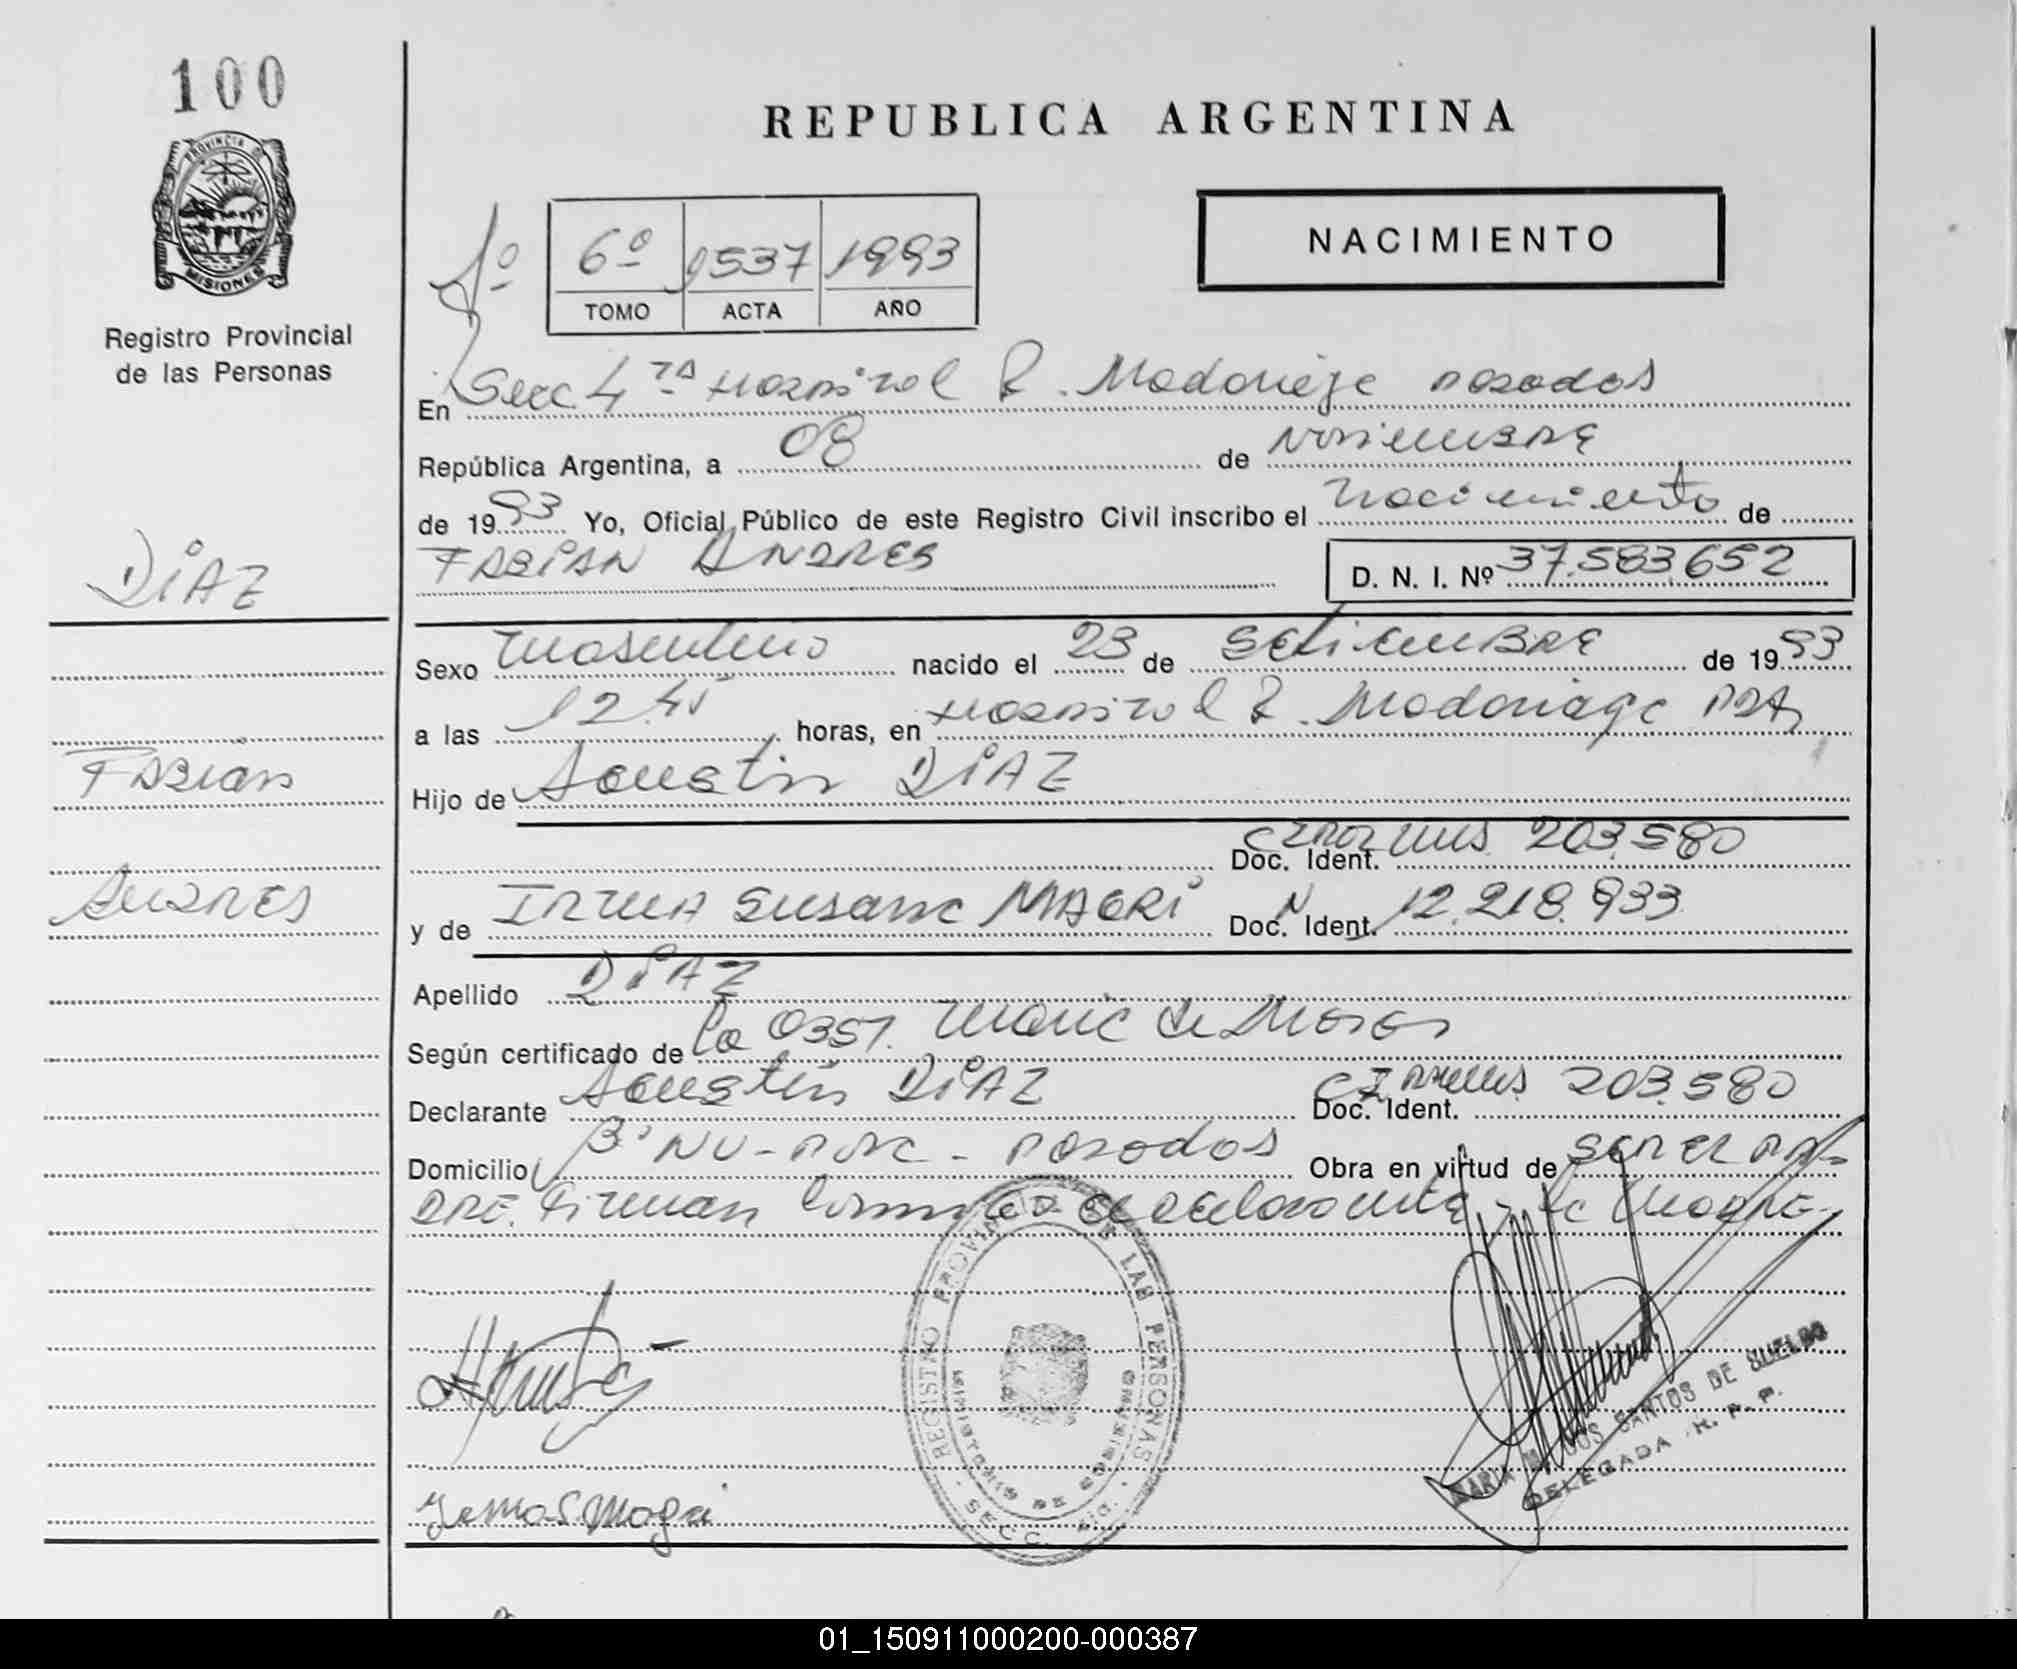 100
REPUBLICA ARGENTINA
PROVINCIA DE
MISIONES
Registro Provincial
de las Personas
6º 1537 1993
TOMO ACTA AÑO
NACIMIENTO
En Secc 4ta Hospital R. Madariaga Posadas
República Argentina, a 08 de Noviembre
de 1993 Yo, Oficial Público de este Registro Civil inscribo el Nacimiento de
FABIAN ANDRES D. N. I. Nº 37.583.652
DiAZ
Sexo Masculino nacido el 23 de Setiembre de 1993
a las 12.45 horas, en Hospital R. Madariaga Pdas
Fabian
Hijo de Agustin DiAZ
Doc. Ident. CI Pol Mis 203.580
Andres
y de Irma Susana MAGRi Doc. Ident. 12.218.933
Apellido DiAZ
Según certificado de la Obst. Maria de
Declarante Agustin DiAZ Doc. Ident. CI Mis 203.580
Domicilio Posadas Obra en virtud de ser el Pa-
dre. Firman el declarante y la Madre-
REGISTRO PROVINCIAL DE LAS PERSONAS
MINISTERIO DE GOBIERNO
SECC.
Irma S. Magri
MARIA SANTOS DE SUELDO
DELEGADA R. P. P.
01_150911000200-000387